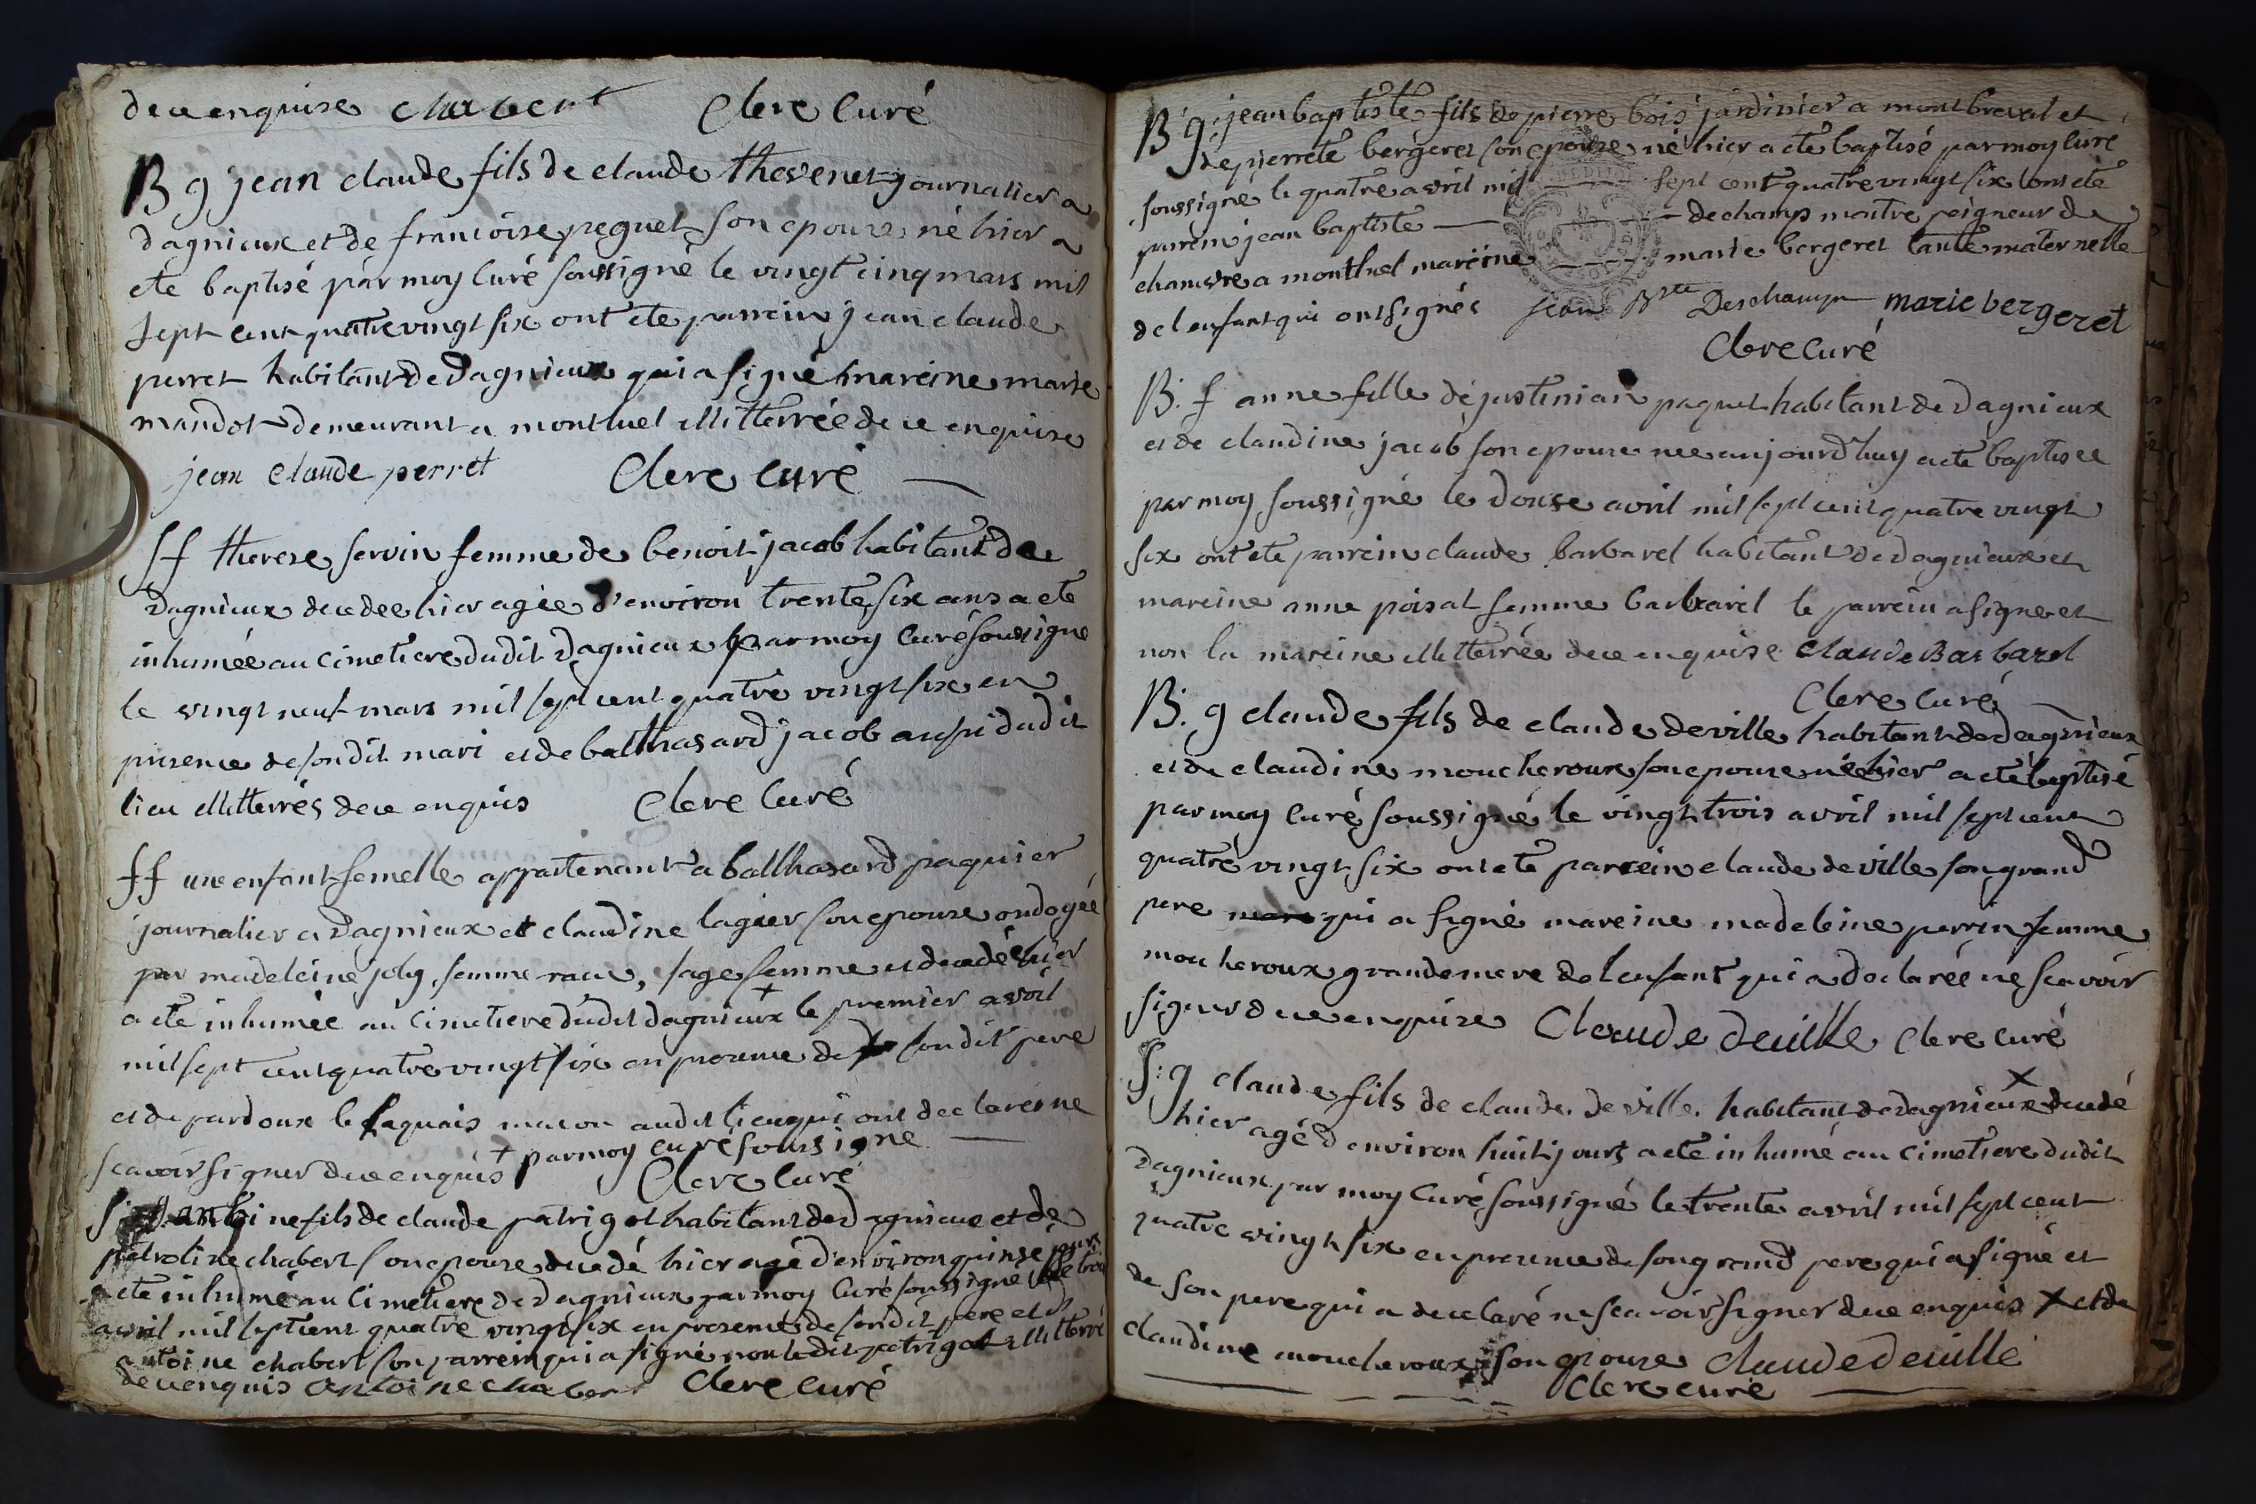 de ce enquise chabert Clere Curé
B g jean claude fils de claude thevenet journalier a
dagnieux et de francoise peguet son epouse né hier a
ete baptisé par moy Curé soussigné le vingt cinq mars mil
sept cent quatre vingt six ont ete parrein jean claude
perret habitant de Dagnieux qui a signé mareine marie
mandot demeurant a montluel illitterrée de ce enquise
jean claude perret Clere Curé
Sf therese servin femme de benoit jacob habitant de
Dagnieux decedee hier agée d'environ trente six ans a ete
inhumée au cimetiere dudit Dagnieux par moy Curé soussigne
le vingt neuf mars mil sept cent quatre vingt six en
presence de son dit mari et de balthasard jacob aussi dudit
lieu illitterrés de ce enquis Clere Curé
Sf une enfant femelle appartenant a balthasard paquier
journalier a Dagnieux et claudine lagier son epouse ondoyée
par madeleine joly femme , sage femme et decedée hier
a ete inhumée au cimetiere dudit dagnieux + le premier avril
mil sept cent quatre vingt six en presence de son dit pere
et de pardoux le faquais macon audit lieu qui ont declarés ne
scavoir signer de ce enquis + par moy curé soussigne
Clere Curé
S g antoine fils de claude patrigot habitant de Dagnieux et de
petroline chabert son epouse decedé hier agé d'environ quinse jours
a ete inhumé au Cimetiere de Dagnieux par moy Curé soussigné le trois
avril mil sept cent quatre vingt six en presence de son dit pere et d
antoine chabert son parrein qui a signé non le dit patrigot illitterré
de ce enquis antoine chabert Clere Curé
B g jean baptiste fils de pierre bois jardinier a montbreval et
de pierrete bergeret son epouse né hier a ete baptisé par moy Curé
soussigné le quatre avril mil sept cent quatre vingt six ont ete
parrein jean baptiste dechamp maitre peigneur de
chanvre a montluel mareine marie bergeret tante maternelle
de l enfant qui ont signés jean Bste Deschamp marie bergeret
Clere Curé
B. f anne fille de justinian paquet habitant de Dagnieux
et de claudine jacob son epouse nee aujourdhuy a ete baptisee
par moy soussigné le douse avril mil sept cent quatre vingt
six ont ete parrein claude barbarel habitant de Dagnieux et
mareine anne poisat femme barbarel le parrein a signe et
non la mareine illitterrée de ce enquise claude Barbarel
Clere Curé
B. g claude fils de claude deville habitant de dagnieux
et de claudine moucheroux son epouse né hier a ete baptisé
par moy Curé soussigné le vingt trois avril mil sept cent
quatre vingt six ont ete parrein claude deville son grand
pere qui a signé mareine madeleine perrin femme
moucheroux grande mere de l enfant qui a declarée ne scavoir
signer de ce enquise Claude deville Clere Curé
S: g claude fils de claude deville habitant de Dagnieux x decedé
hier agé d environ huit jours a ete inhumé au cimetiere dudit
Dagnieux par moy Curé soussigné le trente avril mil sept cent
quatre vingt six en presence de son grand pere qui a signé et
de son pere qui a declaré ne scavoir signer de ce enquis x et de
claudine moucheroux son epouse claude deville
Clere Curé